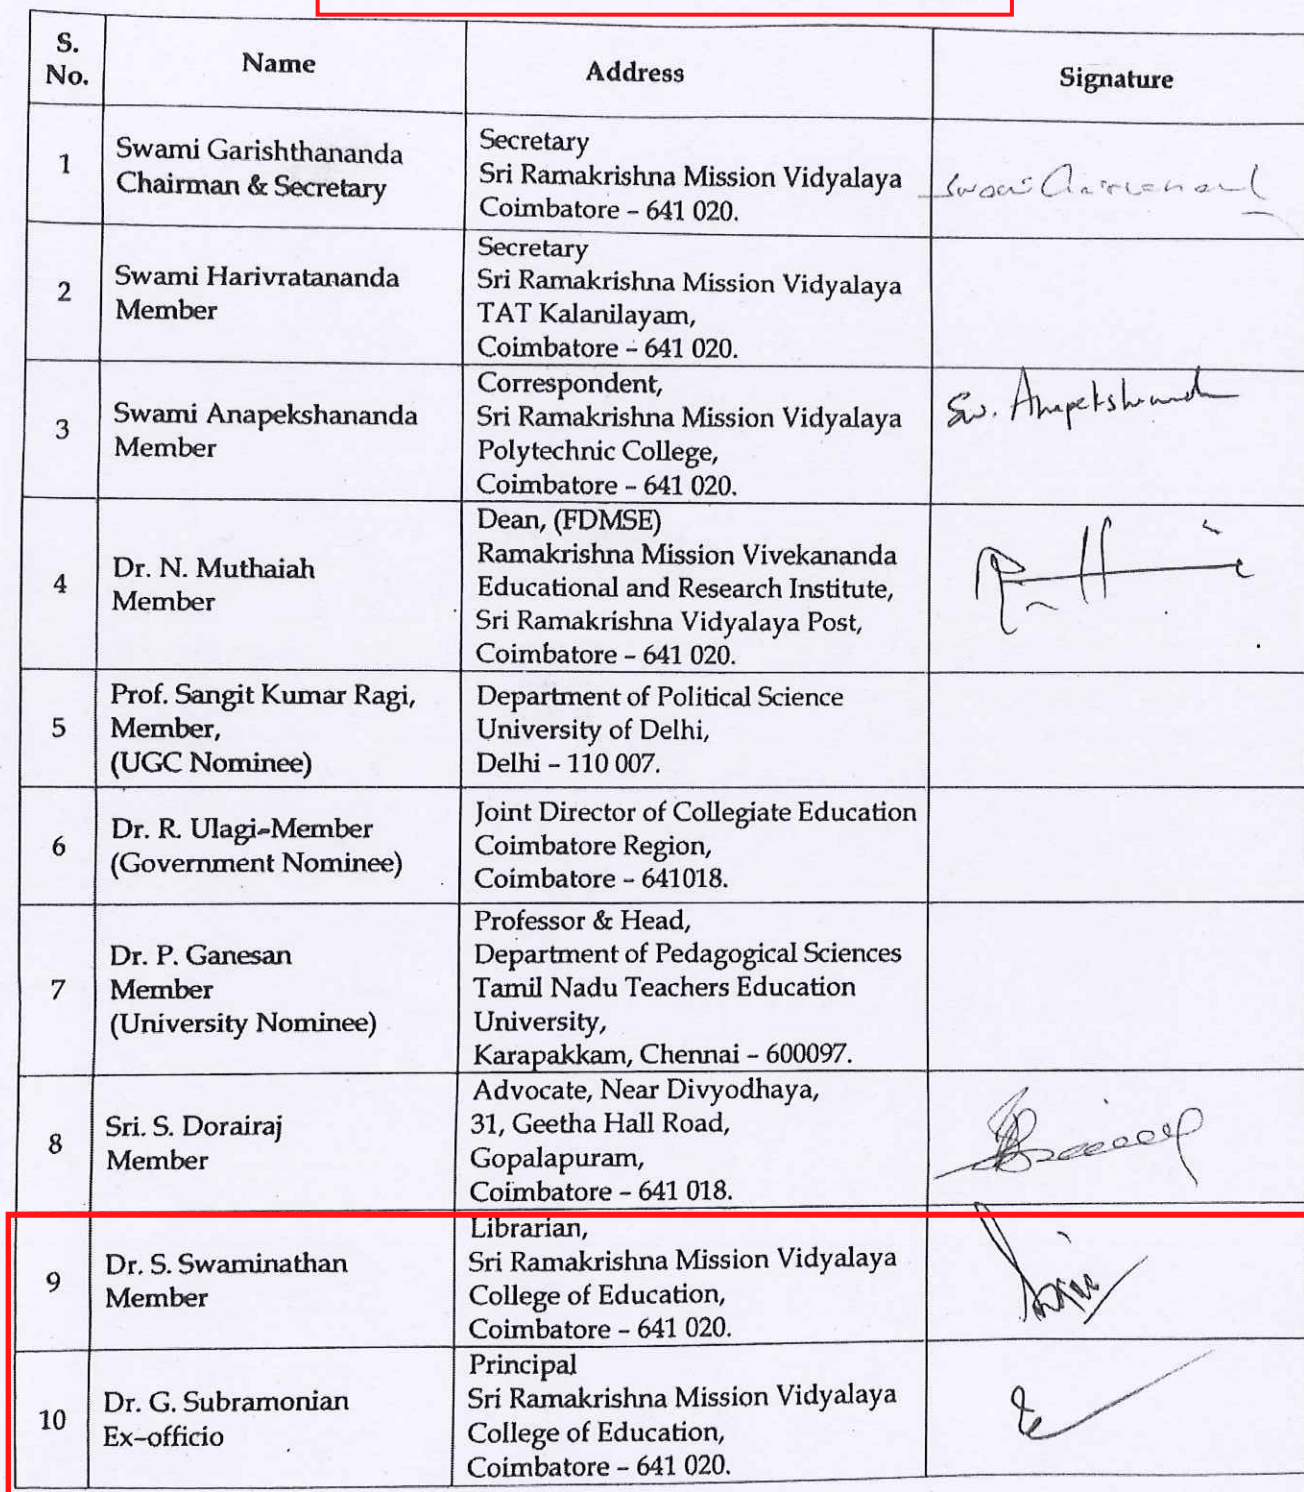 S.
No.
Name
Address
Signature
1
Swami Garishthananda
Chairman & Secretary
Secretary
Sri Ramakrishna Mission Vidyalaya
Coimbatore – 641 020.
2
Swami Harivratananda
Member
Secretary
Sri Ramakrishna Mission Vidyalaya
TAT Kalanilayam,
Coimbatore – 641 020.
3
Swami Anapekshananda
Member
Correspondent,
Sri Ramakrishna Mission Vidyalaya
Polytechnic College,
Coimbatore – 641 020.
Sw. Anapekshananda
4
Dr. N. Muthaiah
Member
Dean, (FDMSE)
Ramakrishna Mission Vivekananda
Educational and Research Institute,
Sri Ramakrishna Vidyalaya Post,
Coimbatore – 641 020.
5
Prof. Sangit Kumar Ragi,
Member,
(UGC Nominee)
Department of Political Science
University of Delhi,
Delhi – 110 007.
6
Dr. R. Ulagi-Member
(Government Nominee)
Joint Director of Collegiate Education
Coimbatore Region,
Coimbatore – 641018.
7
Dr. P. Ganesan
Member
(University Nominee)
Professor & Head,
Department of Pedagogical Sciences
Tamil Nadu Teachers Education
University,
Karapakkam, Chennai – 600097.
8
Sri. S. Dorairaj
Member
Advocate, Near Divyodhaya,
31, Geetha Hall Road,
Gopalapuram,
Coimbatore – 641 018.
9
Dr. S. Swaminathan
Member
Librarian,
Sri Ramakrishna Mission Vidyalaya
College of Education,
Coimbatore – 641 020.
10
Dr. G. Subramonian
Ex-officio
Principal
Sri Ramakrishna Mission Vidyalaya
College of Education,
Coimbatore – 641 020.